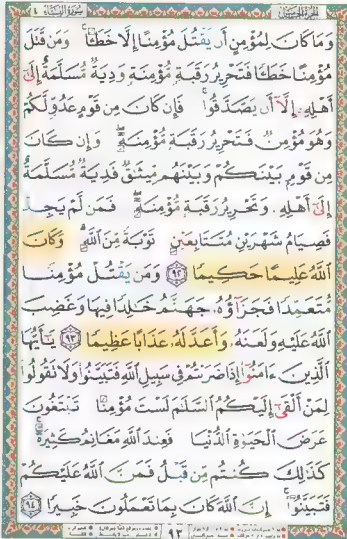 الجزء الخامس
سورة النساء ٤
وَمَا كَانَ لِمُؤْمِنٍ أَن يَقْتُلَ مُؤْمِنًا إِلَّا خَطَـًٔا ۚ وَمَن قَتَلَ
مُؤْمِنًا خَطَـًٔا فَتَحْرِيرُ رَقَبَةٍ مُّؤْمِنَةٍ وَدِيَةٌ مُّسَلَّمَةٌ إِلَىٰٓ
أَهْلِهِۦٓ إِلَّآ أَن يَصَّدَّقُوا۟ ۚ فَإِن كَانَ مِن قَوْمٍ عَدُوٍّ لَّكُمْ
وَهُوَ مُؤْمِنٌ فَتَحْرِيرُ رَقَبَةٍ مُّؤْمِنَةٍ ۖ وَإِن كَانَ
مِن قَوْمٍۭ بَيْنَكُمْ وَبَيْنَهُم مِّيثَٰقٌ فَدِيَةٌ مُّسَلَّمَةٌ
إِلَىٰٓ أَهْلِهِۦ وَتَحْرِيرُ رَقَبَةٍ مُّؤْمِنَةٍ ۖ فَمَن لَّمْ يَجِدْ
فَصِيَامُ شَهْرَيْنِ مُتَتَابِعَيْنِ تَوْبَةً مِّنَ ٱللَّهِ ۗ وَكَانَ
ٱللَّهُ عَلِيمًا حَكِيمًا ٩٢ وَمَن يَقْتُلْ مُؤْمِنًا
مُّتَعَمِّدًا فَجَزَآؤُهُۥ جَهَنَّمُ خَٰلِدًا فِيهَا وَغَضِبَ
ٱللَّهُ عَلَيْهِ وَلَعَنَهُۥ وَأَعَدَّ لَهُۥ عَذَابًا عَظِيمًا ٩٣ يَٰٓأَيُّهَا
ٱلَّذِينَ ءَامَنُوٓا۟ إِذَا ضَرَبْتُمْ فِى سَبِيلِ ٱللَّهِ فَتَبَيَّنُوا۟ وَلَا تَقُولُوا۟
لِمَنْ أَلْقَىٰٓ إِلَيْكُمُ ٱلسَّلَٰمَ لَسْتَ مُؤْمِنًا تَبْتَغُونَ
عَرَضَ ٱلْحَيَوٰةِ ٱلدُّنْيَا فَعِندَ ٱللَّهِ مَغَانِمُ كَثِيرَةٌ ۚ
كَذَٰلِكَ كُنتُم مِّن قَبْلُ فَمَنَّ ٱللَّهُ عَلَيْكُمْ
فَتَبَيَّنُوٓا۟ ۚ إِنَّ ٱللَّهَ كَانَ بِمَا تَعْمَلُونَ خَبِيرًا ٩٤
٩٣